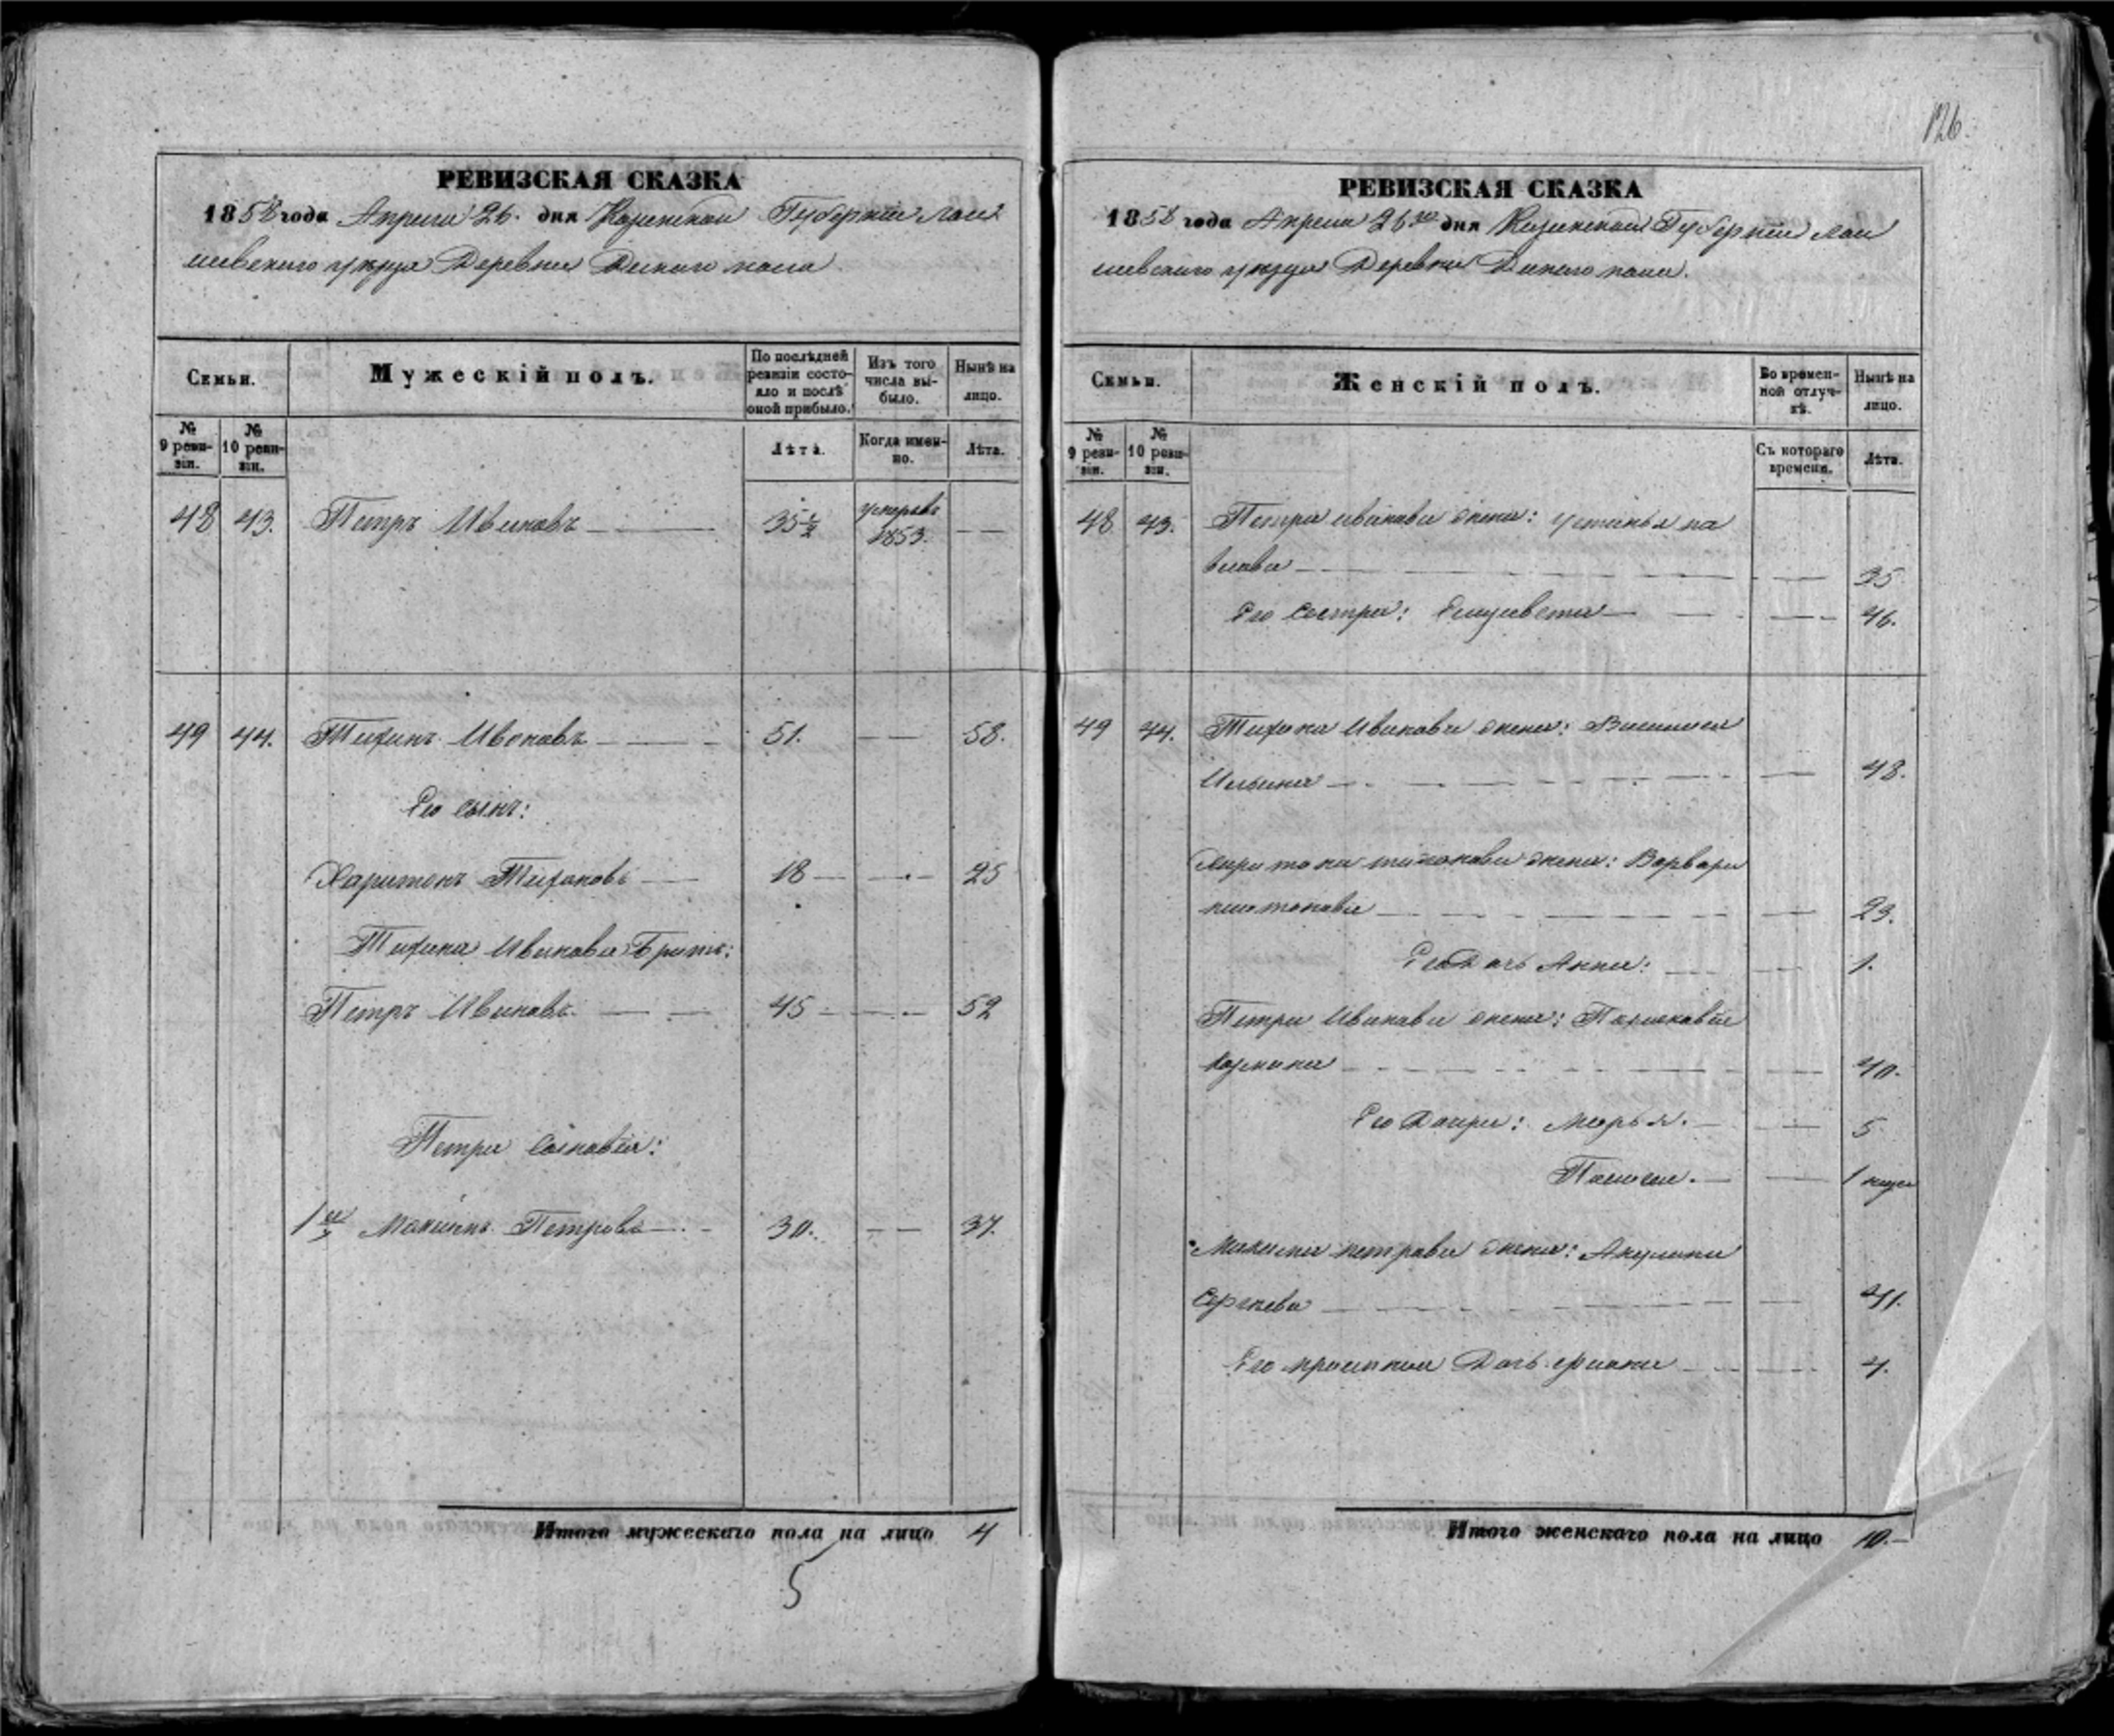 126.
РЕВИЗСКАЯ СКАЗКА
1858 года Апреля 26. дня Казанской Губерніи Лаи
шевского уѣзда Деревни Дикаго поля
Семьи.
Мужескій полъ.
По послѣдней ревизіи состояло и послѣ оной прибыло.
Изъ того числа выбыло.
Нынѣ на лицо.
№ 9 ревизіи.
№ 10 ревизіи.
Лѣта.
Когда именно.
Лѣта.
48 43. Петръ Ивановъ 35 умеръ въ 1853.
49 44. Тихонъ Ивановъ 51. 58.
Его сынъ:
Харитонъ Тихоновъ 18 25
Тихона Иванова Братъ:
Петръ Ивановъ 45 52
Петра сыновья:
1й Максимъ Петровъ 30. 37.
Итого мужескаго пола на лицо 4
5
РЕВИЗСКАЯ СКАЗКА
1858 года Апреля 26го дня Казанской Губерніи Лаи
шевского уѣзда Деревни Дикаго поля.
Семьи.
Женскій полъ.
Во временной отлучкѣ.
Нынѣ на лицо.
№ 9 ревизіи.
№ 10 ревизіи.
Съ котораго времени.
Лѣта.
48 43. Петра иванова жена: устинья па
влова 35
Его сестра: Елизавета 46.
49 44. Тихона Иванова жена: Василиса
Ильина 48.
Харитона тихонова жена: Варвара
платонова 23.
Его Дочь Анна: 1.
Петра Иванова жена: Парасковья
козмина 40.
Его Дочри: Марья. 5
1
Максима петрова жена: Акулина
Сергеева 41.
Его Дочь 4.
Итого женскаго пола на лицо 10.